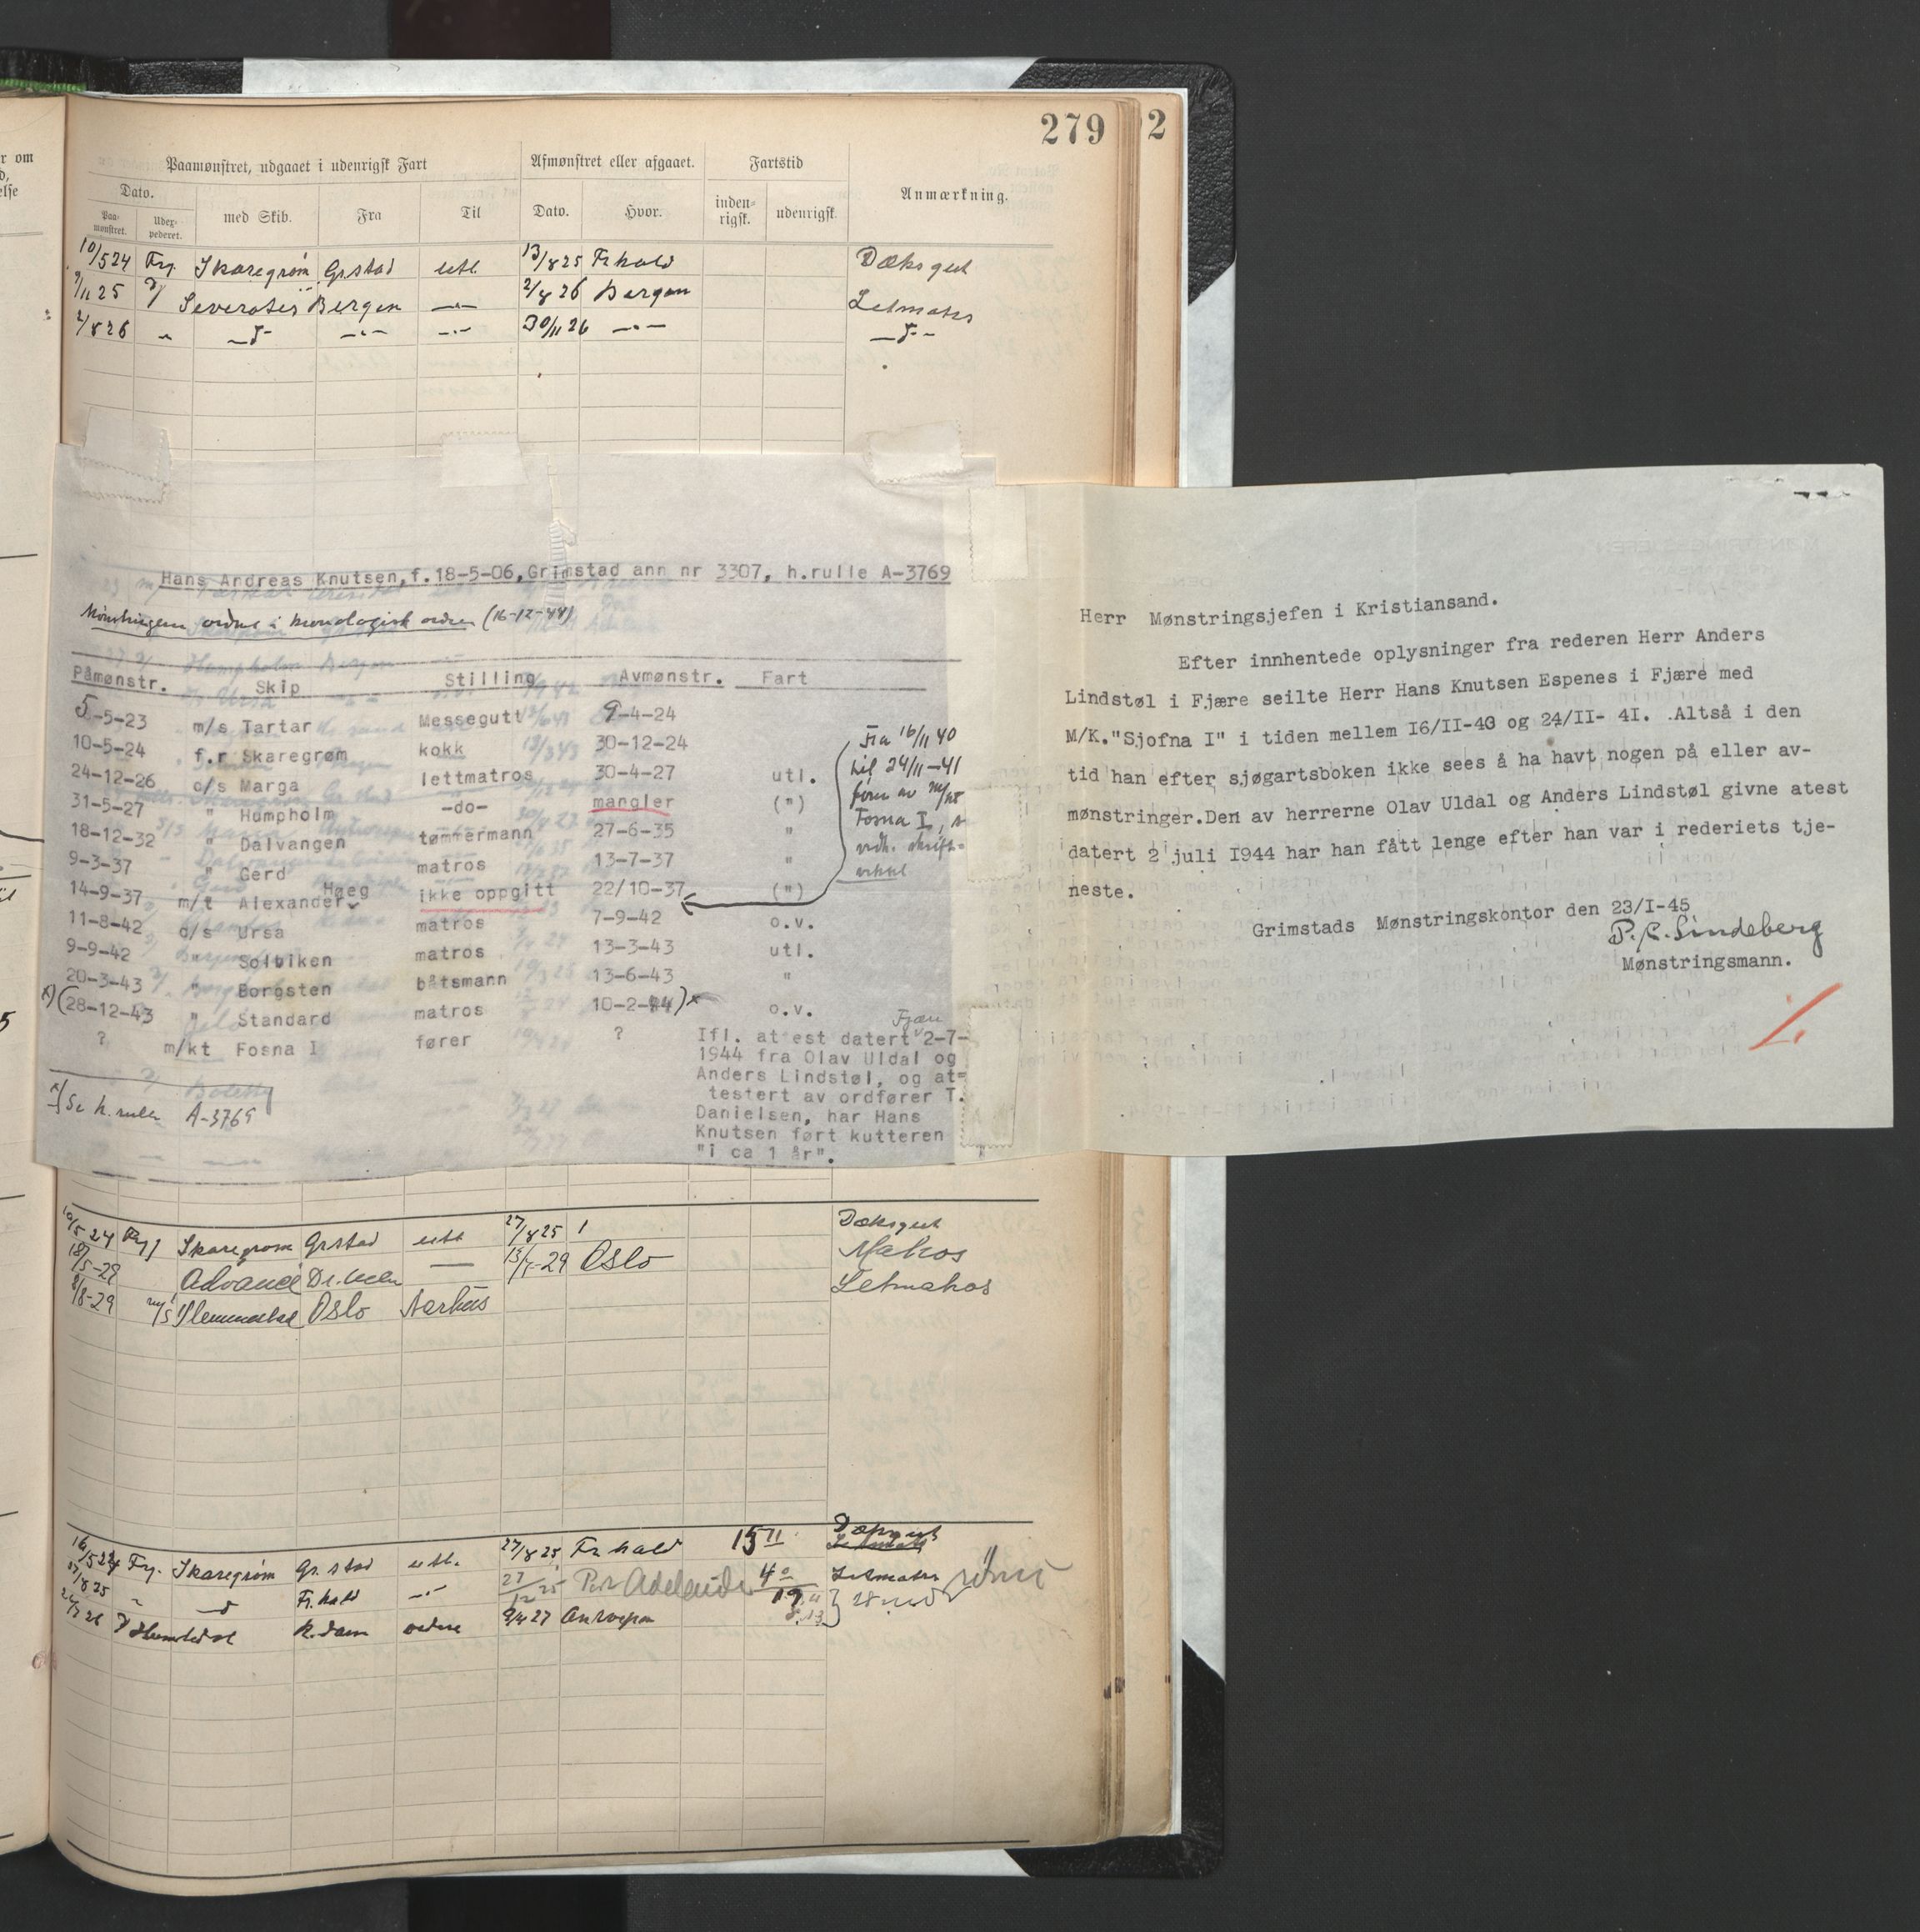 279
2
r om
d,
else
Paamønstret, udgaaet i udenrigsk Fart
Afmønstret eller afgaaet.
Fartstid
Anmærkning.
Dato.
Paa-
mønstret.
Udex-
pederet.
med Skib.
Fra
Til
Dato.
Hvor.
inden-
rigsk.
udenrigsk.
10/5 24 Frg. Skaregrøm Grstad utl. 13/8 25 Frhald Dæksgut
9/11 25 Bergen 2/8 26 Bergen Letmatros
2/8 26 30/11 26
Hans Andreas Knutsen, f.18-5-06, Grimstad ann nr 3307, h.rulle A-3769
(16-12-44)
Påmønstr. Skip Stilling Avmønstr. Fart
5-5-23 m/s Tartar Messegutt 9-4-24
10-5-24 f.r Skaregrøm kokk 30-12-24
24-12-26 d/s Marga lettmatros 30-4-27 utl.
31-5-27 " Humpholm -do- mangler (")
18-12-32 " Dalvangen tømmermann 27-6-35 "
9-3-37 " Gerd matros 13-7-37 "
14-9-37 m/t Alexander Høeg ikke oppgitt 22/10-37 (")
11-8-42 d/s Ursa matros 7-9-42 o.v.
9-9-42 " Solviken matros 13-3-43 utl.
20-3-43 " Borgsten båtsmann 13-6-43 "
x) (28-12-43 " Standard matros 10-2-44) x o.v.
? m/kt Fosna I fører ?
Fra 16/11 40
til 24/11-41
fører av m/kt
Fosna I, s
vedh. skrift-
veksel
Fjære
Ifl. attest datert 2-7-
1944 fra Olav Uldal og
Anders Lindstøl, og at-
testert av ordfører T.
Danielsen, har Hans
Knutsen ført kutteren
"i ca 1 år".
x) Se h.rulle A-3769
Herr Mønstringsjefen i Kristiansand.
Efter innhentede oplysninger fra rederen Herr Anders
Lindstøl i Fjære seilte Herr Hans Knutsen Espenes i Fjære med
M/K."Sjofna I" i tiden mellem I6/II-40 og 24/II- 4I. .Altså i den
tid han efter sjøgartsboken ikke sees å ha havt nogen på eller av-
mønstringer.Den av herrerne Olav Uldal og Anders Lindstøl givne atest
datert 2 juli I944 har han fått lenge efter han var i rederiets tje-
neste.
Grimstads Mønstringskontor den 23/I-45
P. C. Lindeberg
Mønstringsmann.
10/5 24 Frg Skaregrøm Grstad utl 27/8 25 Dæksgut
18/5-28 Advance 13/4-29 Oslo Matros
8/8-29 m/s Oslo Aarhus Letmatros
16/5 24 Frg. Skaregrøm Gr.stad utl. 27/8 25 Fr.hald 15 11 Dæksgut
27/8 25 Fr.hald 27/12 25 Port Adelaide 4 0 Letmatros
R.dam 9/4 27 Antwerpen 28 md